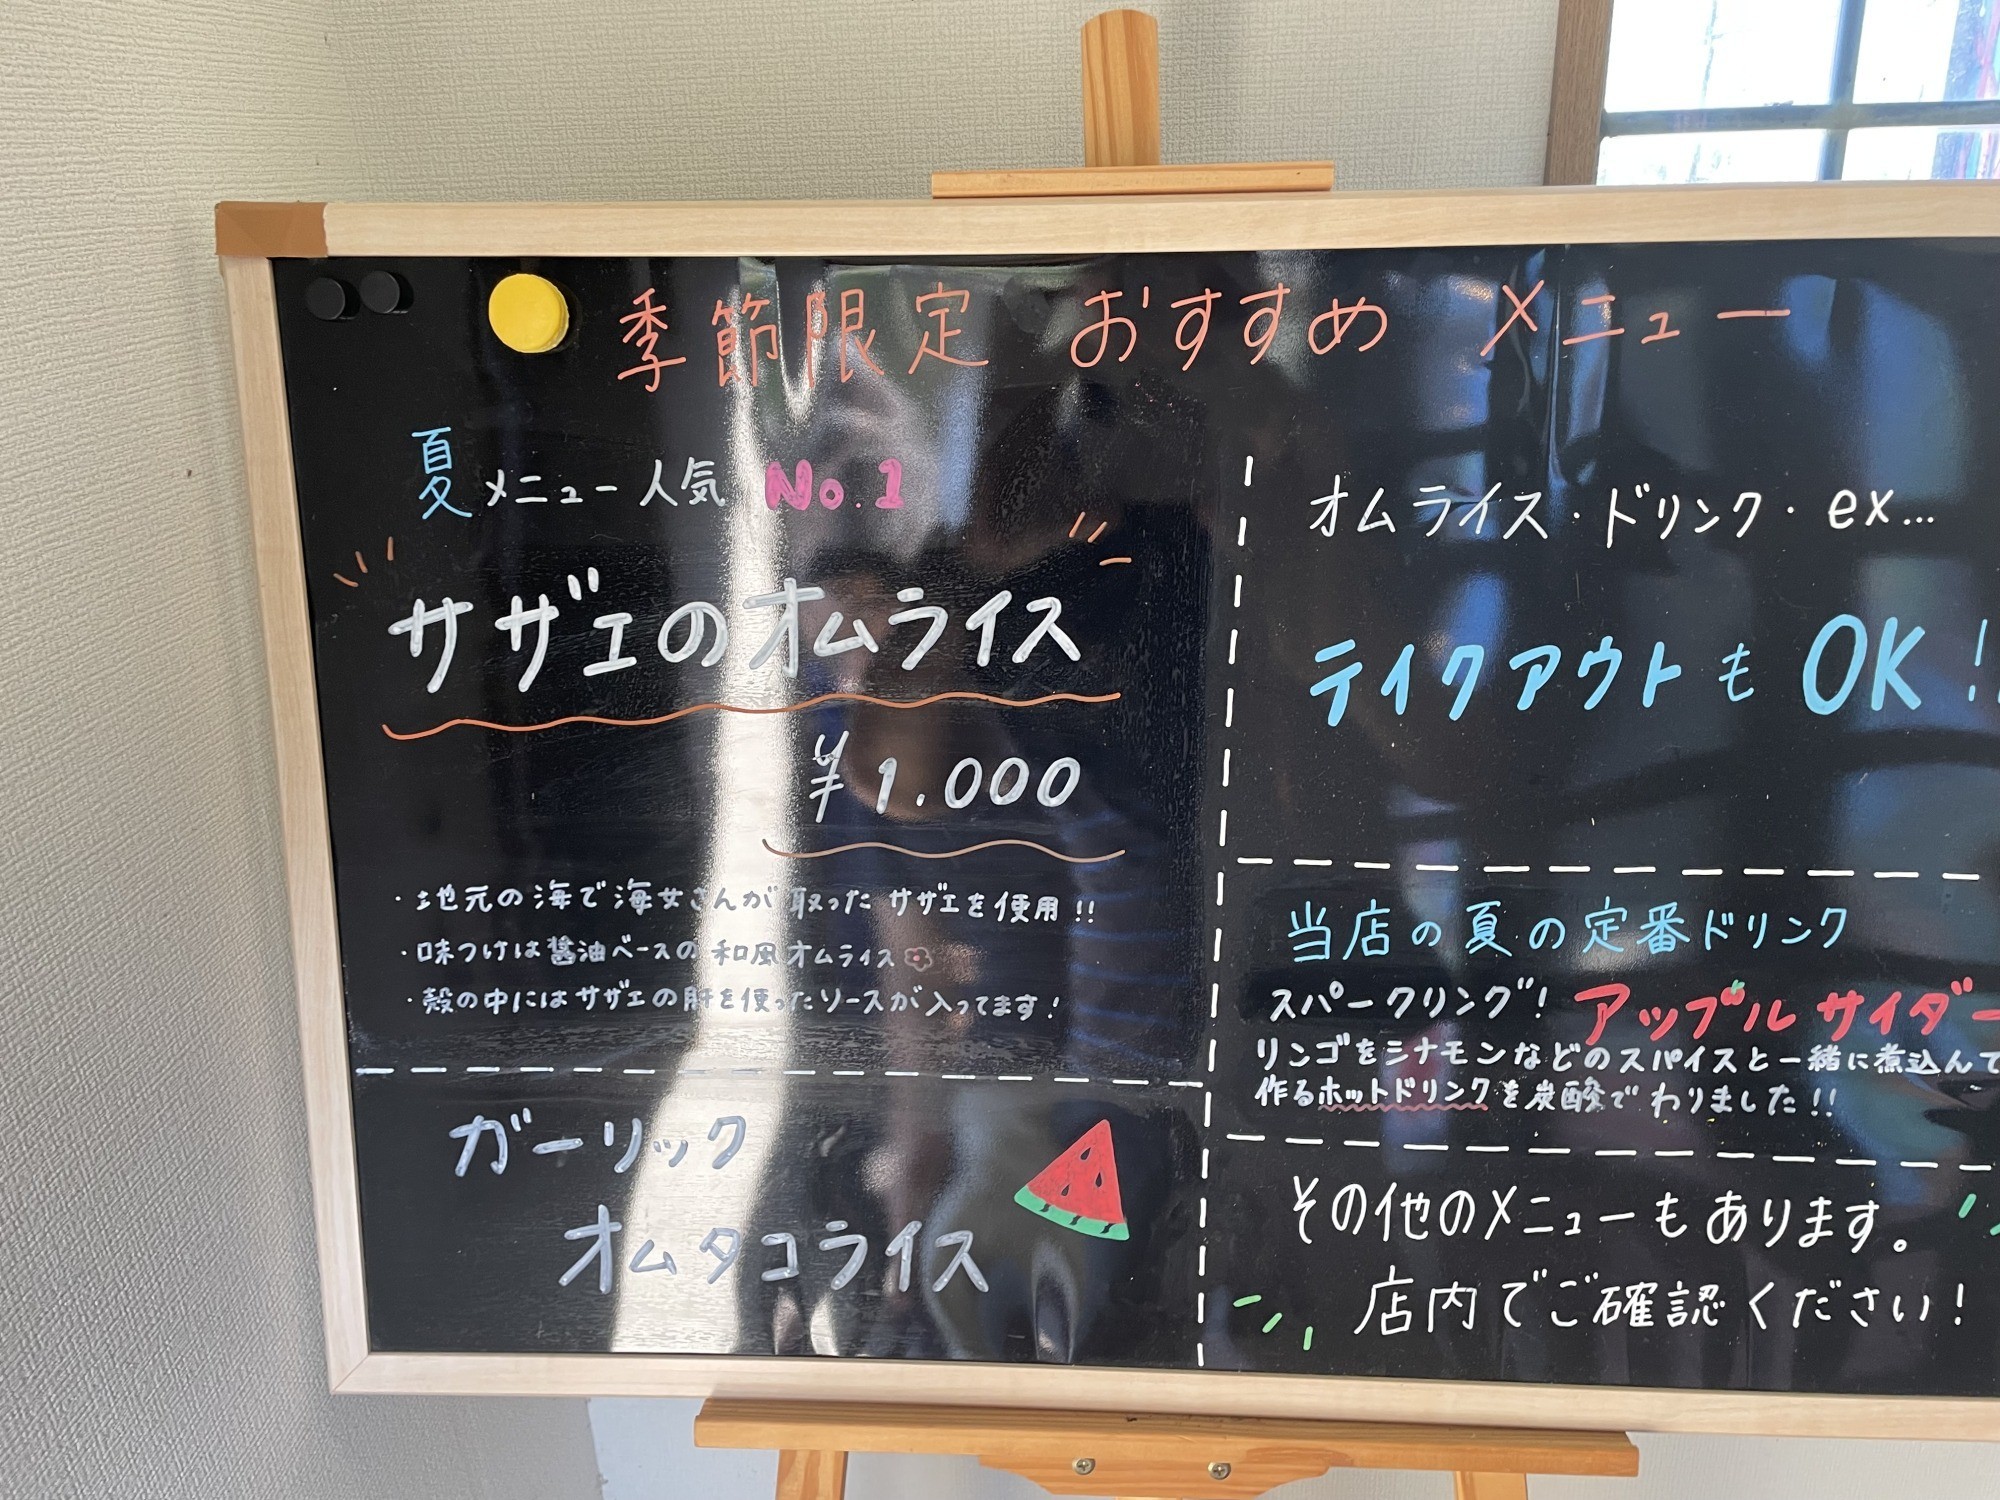 季節限定 おすすめ メニュー
夏メニュー人気 No.1
サザエのオムライス
¥1.000
・地元の海で海女さんが取ったサザエを使用!!
・味つけは醤油ベースの和風オムライス
・殻の中にはサザエの肝を使ったソースが入ってます!
ガーリック
オムタコライス
オムライス・ドリンク・ex...
テイクアウトもOK!!
当店の夏の定番ドリンク
スパークリング! アップルサイダー
リンゴをシナモンなどのスパイスと一緒に煮込んで
作るホットドリンクを炭酸でわりました!!
その他のメニューもあります。
店内でご確認ください!